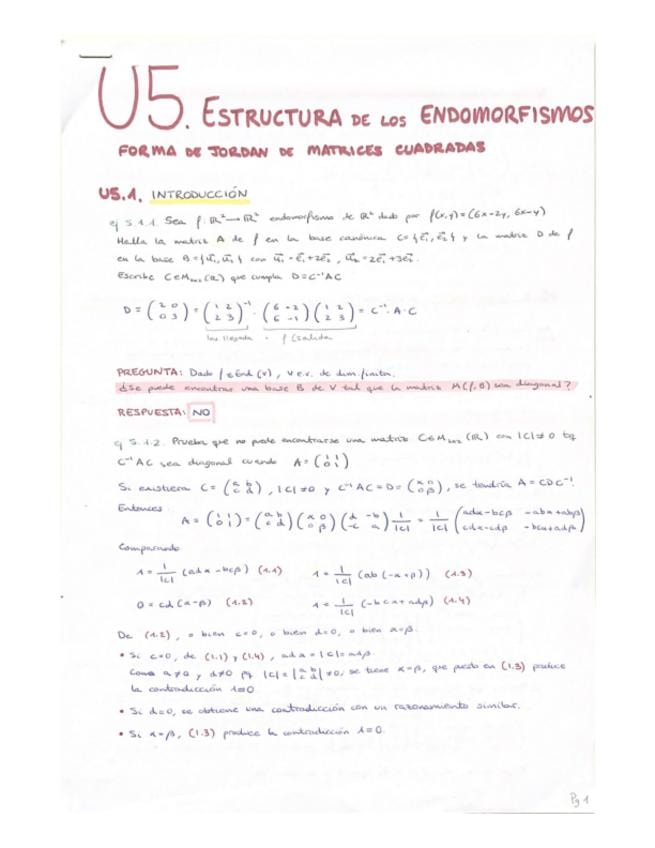 U5. ESTRUCTURA DE LOS ENDOMORFISMOS
FORMA DE JORDAN DE MATRICES CUADRADAS
U5.1. INTRODUCCIÓN
ej 5.1.1. Sea f: ℝ² → ℝ² endomorfismo de ℝ² dado por f(x,y) = (6x-2y, 6x-y)
Halla la matriz A de f en la base canónica C = {e₁, e₂} y la matriz D de f
en la base B = {u₁, u₂} con u₁ = e₁ + 2e₂, u₂ = 2e₁ + 3e₂.
Escribe C ∈ M₂ₓ₂(ℝ) que cumpla D = C⁻¹AC
D = (2 0; 0 3) = (1 2; 2 3)⁻¹ · (6 -2; 6 -1) (1 2; 2 3) = C⁻¹·A·C
f (salida
PREGUNTA: Dado f ∈ End(V), V e.v. de dim. finita.
¿Se puede encontrar una base B de V tal que la matriz M(f,B) sea diagonal?
RESPUESTA: NO
ej 5.1.2. Prueba que no puede encontrarse una matriz C ∈ M₂ₓ₂(ℝ) con |C| ≠ 0 tq
C⁻¹AC sea diagonal cuando A = (1 1; 0 1)
Si existiera C = (a b; c d), |C| ≠ 0 y C⁻¹AC = D = (α 0; 0 β), se tendría A = CDC⁻¹.
Entonces
A = (1 1; 0 1) = (a b; c d) (α 0; 0 β) (d -b; -c a) 1/|C| = 1/|C| (adα-bcβ -abα+abβ; cdα-cdβ -bcα+adβ)
Comparando
1 = 1/|C| (adα - bcβ) (1.1) 1 = 1/|C| (ab(-α+β)) (1.3)
0 = cd(α-β) (1.2) 1 = 1/|C| (-bcα + adβ) (1.4)
De (1.2), o bien c=0, o bien d=0, o bien α=β.
• Si c=0, de (1.1) y (1.4), adα = |C| = adβ.
Como a≠0 y d≠0 pq |C| = |a b; c d| ≠ 0, se tiene α=β, que puesto en (1.3) produce
la contradicción 1=0
• Si d=0, se obtiene una contradicción con un razonamiento similar.
• Si α=β, (1.3) produce la contradicción 1=0.
Pg 1